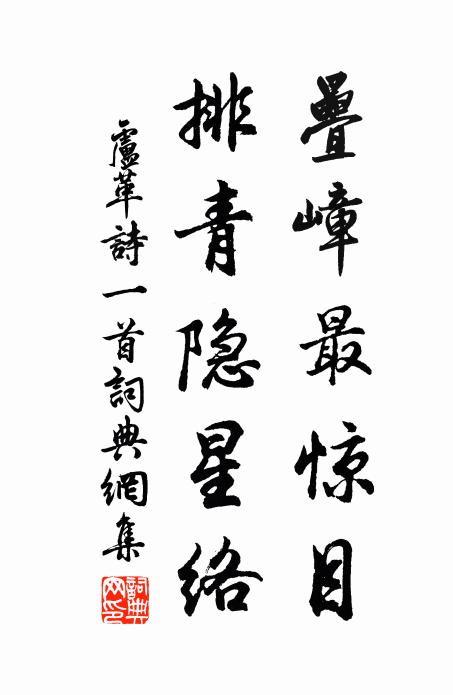 疊嶂最惊目
排青隐星络
盧革詩一首詞典網集
詞典網印